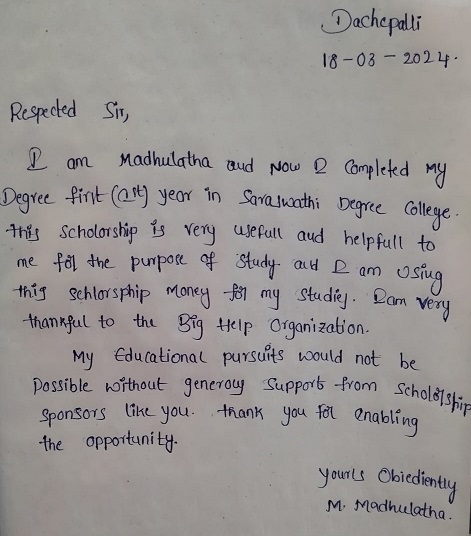 Dachepalli
18-03-2024.
Respected Sir,
I am Madhulatha and Now I Completed My
Degree first (1st) year in Saraswathi Degree College.
this Scholorship is very usefull and helpfull to
me for the purpose of study and I am Using
this Schlorsphip Money for my studies. I am very
thankful to the Big Help Organization.
My Educational pursuits would not be
Possible without generous Supports from Scholorship
sponsors like you. thank you for enabling
the opportunity.
yours Obiediently
M. Madhulatha.